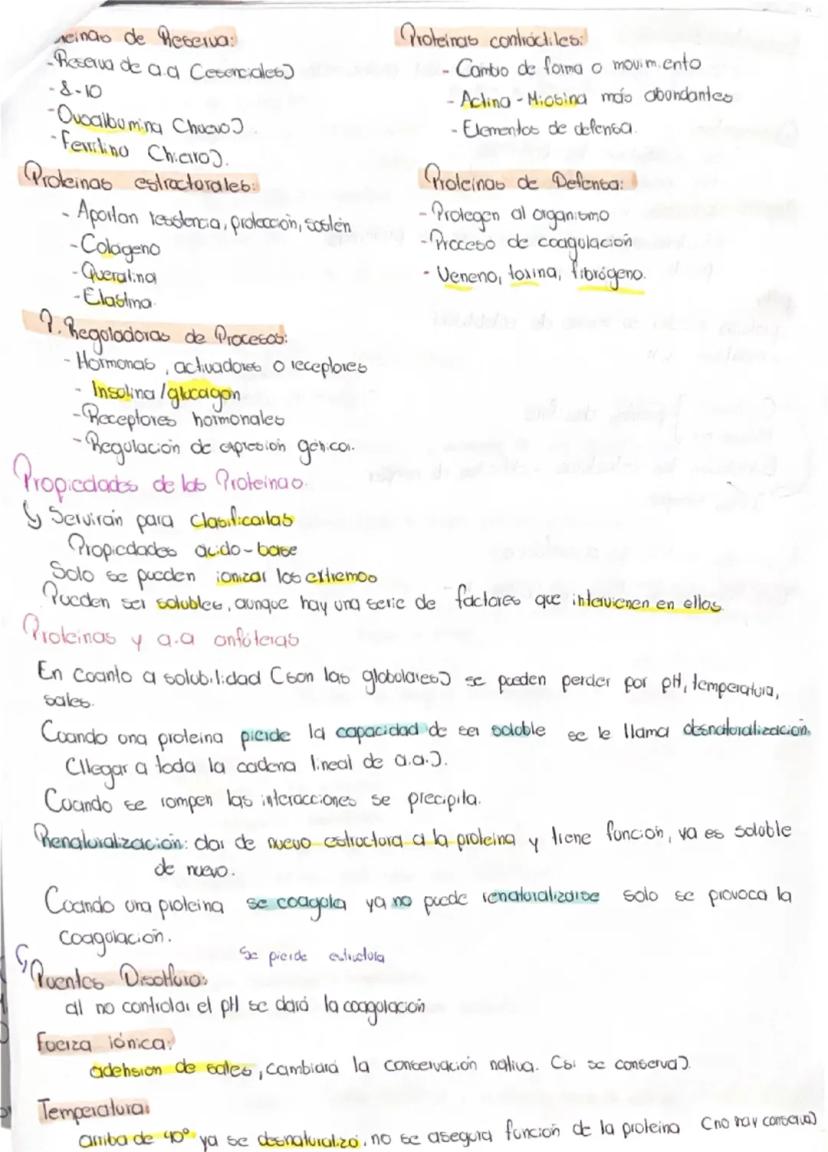 de Reserva:
-Reserva de a.a (esenciales)
-8-10
-Ovoalbumina (huevo).
-Ferritina
Proteinas estructurales:
- Aportan resistencia, protección, sostén
-Colageno
-Queratina
-Elastina
P. Reguladoras de Procesos:
-Hormonas, activadores o receptores
- Insulina/glucagon
-Receptores hormonales
-Regulación de expresión génica.
Proteinas contráctiles:
- Cambio de forma o movimiento
- Actina-Miosina más abundantes
- Elementos de defensa.
Proteinas de Defensa:
- Protegen al organismo
-Proceso de coagulación
- Veneno, toxina, fibrógeno.
Propiedades de las Proteinas.
↳ Servirán para clasificarlas
Propiedades ácido-base
Solo se pueden ionizar los extremos
Pueden ser solubles, aunque hay una serie de factores que intervienen en ellos.
Proteinas y a.a anfóteras
En cuanto a solubilidad (son las globulares) se pueden perder por pH, temperatura,
sales.
Cuando una proteina pierde la capacidad de ser soluble se le llama desnaturalización.
(llegar a toda la cadena lineal de a.a.).
Cuando se rompen las interacciones se precipita.
Renaturalización: dar de nuevo estructura a la proteina y tiene función, ya es soluble
de nuevo.
Cuando una proteina se coagula ya no puede renaturalizarse solo se provoca la
coagulación.
Se pierde estructura
Puentes Disulfuro:
al no controlar el pH se dará la coagulación
Fuerza iónica:
adehsion de sales, cambiará la conservación nativa. (si se conserva).
Temperatura:
arriba de 40° ya se desnaturalizó, no se asegura función de la proteina (no hay